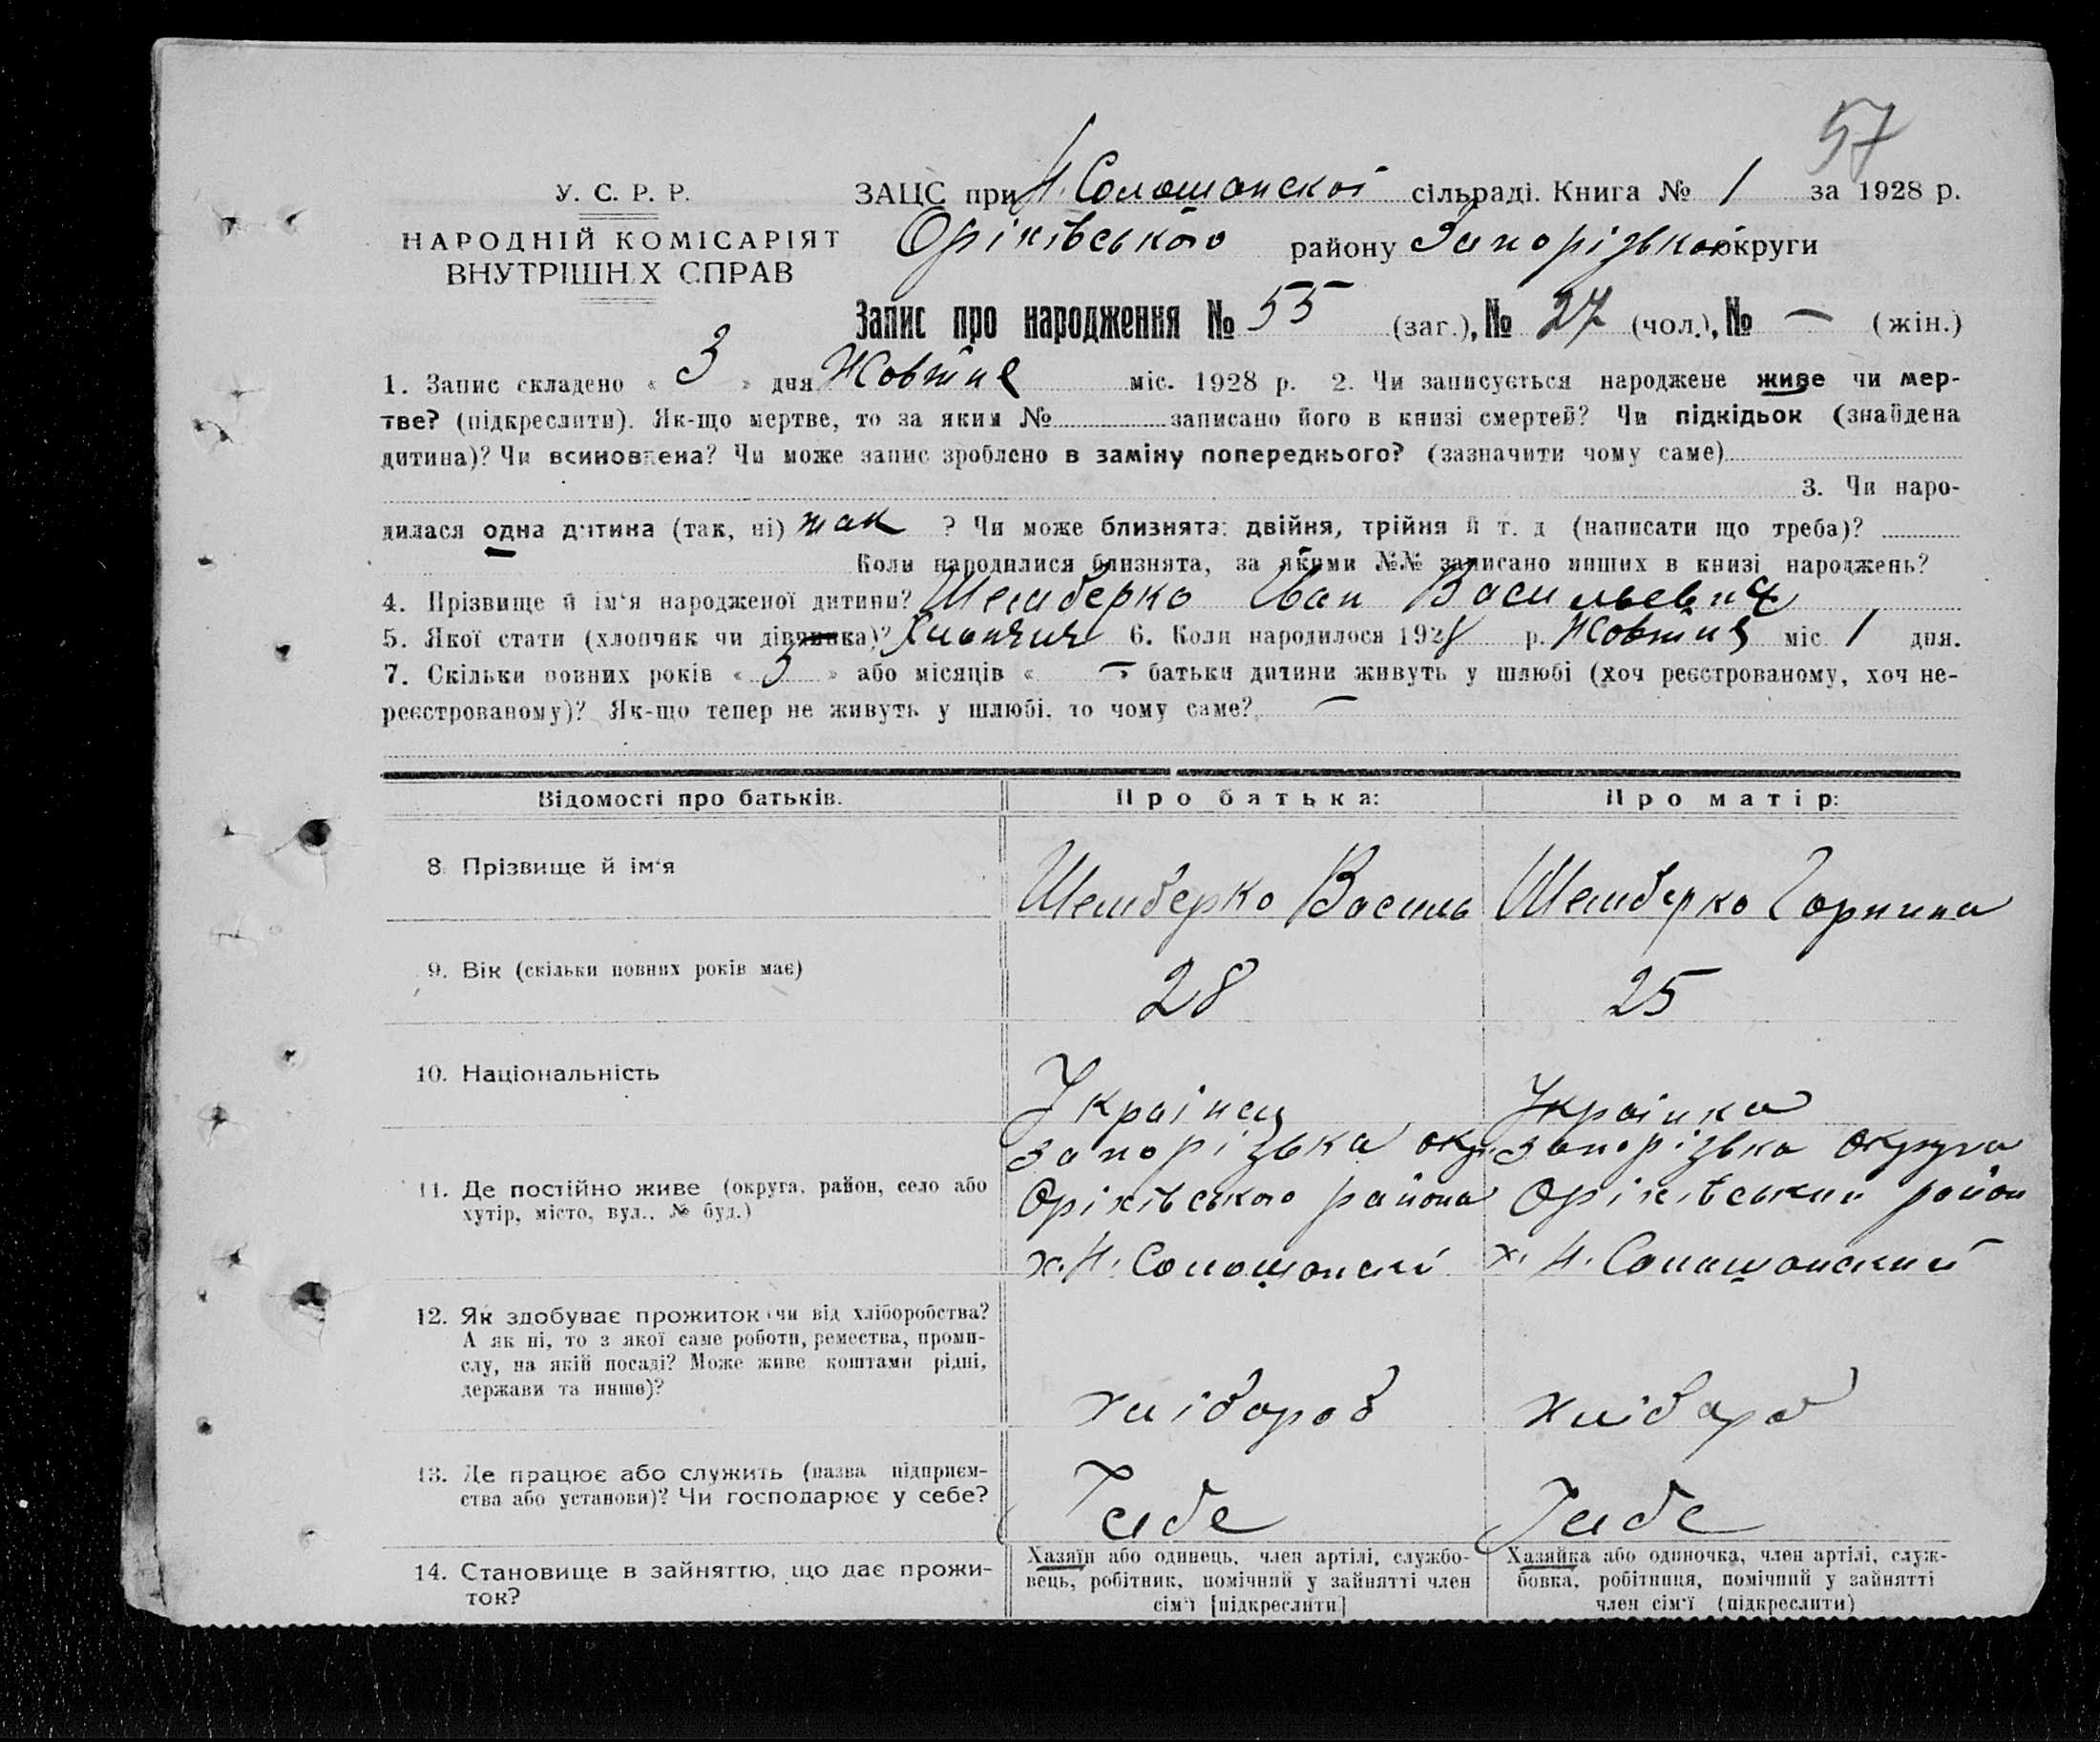 57
У. С. Р. Р.
НАРОДНІЙ КОМІСАРІЯТ
ВНУТРІШНІХ СПРАВ
ЗАЦС при Н. Солошанскої сільраді. Книга № 1 за 1928 р.
Оріхівського району Запорізької округи
Запис про народження № 55 (заг.), № 27 (чол.), № — (жін.)
1. Запис складено « 3 » дня Жовтня міс. 1928 р. 2. Чи записується народжене живе чи мер-
тве? (підкреслити). Як-що мертве, то за яким № записано його в книзі смертей? Чи підкідьок (знайдена
дитина)? Чи всиновлена? Чи може запис зроблено в заміну попереднього? (зазначити чому саме)
3. Чи наро-
дилася одна дитина (так, ні) так ? Чи може близнята: двійня, трійня й т. д (написати що треба)?
Коли народилися близнята, за якими №№ записано инших в книзі народжень?
4. Прізвище й ім'я народженої дитини? Шемберко Іван Васильевич
5. Якої стати (хлопчик чи дівчинка)? Хлопчик 6. Коли народилося 1928 р. Жовтня міс 1 дня.
7. Скільки повних років « 3 » або місяців « — » батьки дитини живуть у шлюбі (хоч реєстрованому, хоч не-
реєстрованому)? Як-що тепер не живуть у шлюбі, то чому саме? —
Відомості про батьків. Про батька: Про матір:
8. Прізвище й ім'я Шемберко Василь Шемберко Горпина
9. Вік (скільки повних років має) 28 25
10. Національність Українец Українка
11. Де постійно живе (округа, район, село або
хутір, місто, вул., № буд.)
Запорізька окр.
Оріхівського района
х. Н. Солошанскі
Запорізька округа
Оріхівський район
х. Н. Солошанский
12. Як здобуває прожиток (чи від хліборобства?
А як ні, то з якої саме роботи, ремества, проми-
слу, на якій посаді? Може живе коштами рідні,
держави та инше)?
хлібороб хлібороб
13. Де працює або служить (назва підприєм-
ства або установи)? Чи господарює у себе?
У себе У себе
14. Становище в зайняттю, що дає прожи-
ток?
Хазяїн або одинець, член артілі, службо-
вець, робітник, помічний у зайнятті член
сім'ї [підкреслити]
Хазяйка або одиночка, член артілі, служ-
бовка, робітниця, помічний у зайнятті
член сім'ї (підкреслити)